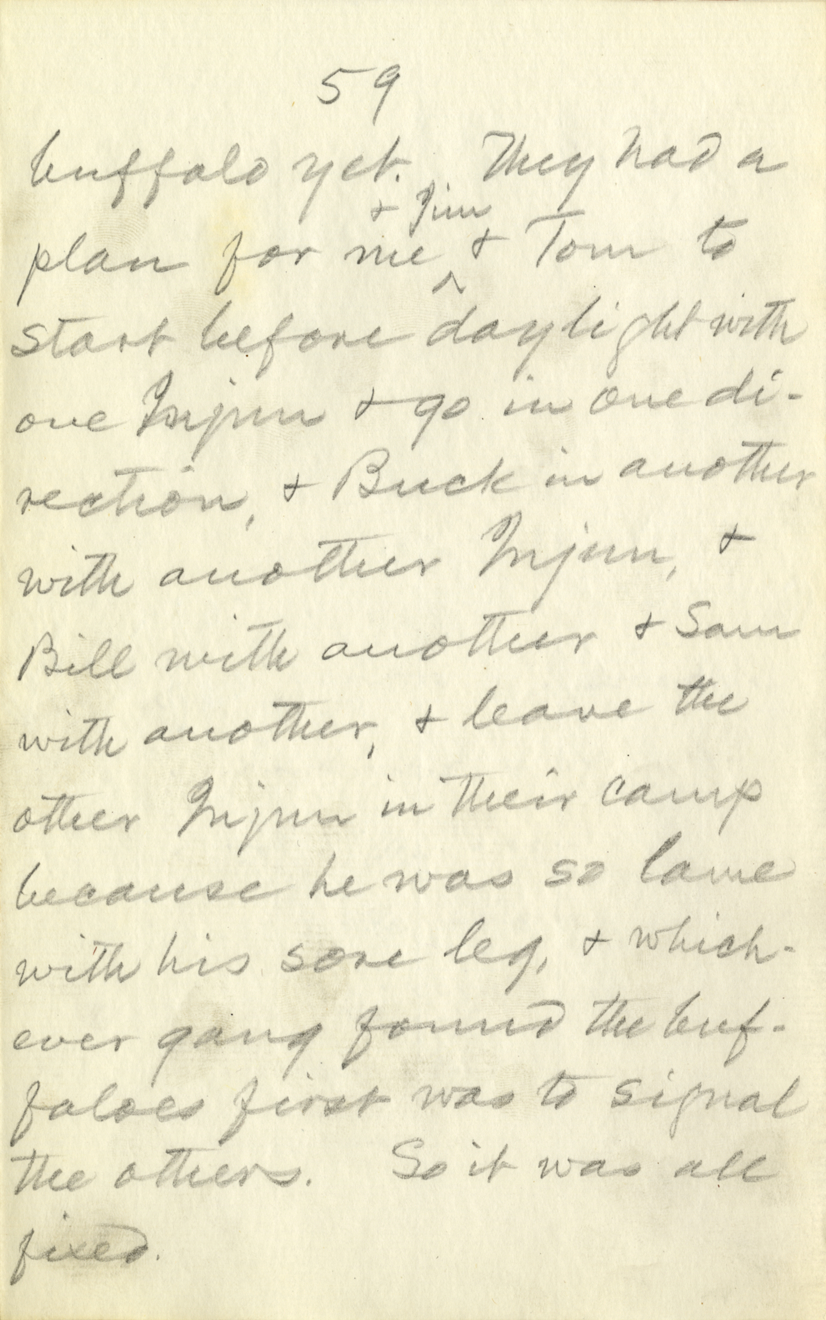 59
buffalo yet. They had a
+ Jim
plan for me ^ & Tom to
start before daylight with
one Injun & go in one di-
rection, & Buck in another
with another Injun, &
Bill with another & Sam
with another, & leave the
other Injun in their camp
because he was so lame
with his sore leg, & which-
ever gang found the buf-
faloes first was to signal
the others. So it was all
fixed.